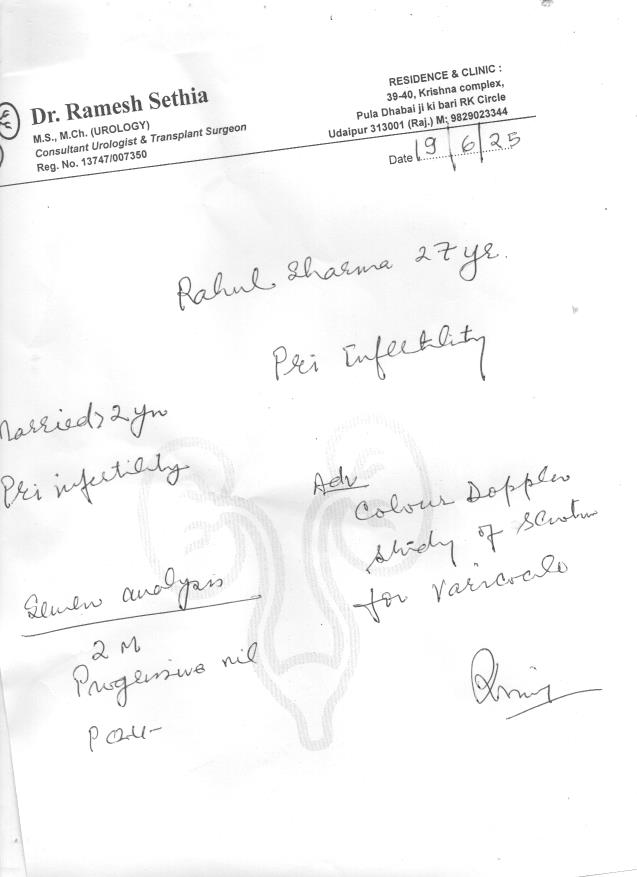 Dr. Ramesh Sethia
M.S., M.Ch. (UROLOGY)
Consultant Urologist & Transplant Surgeon
Reg. No. 13747/007350
RESIDENCE & CLINIC :
39-40, Krishna complex,
Pula Dhabai ji ki bari RK Circle
Udaipur 313001 (Raj.) M: 9829023344
Date 19/6/25
Rahul Sharma 27 yr.
Pri Infertility
Married > 2 yrs
Pri infertility
Semen analysis
2 M
Progressive nil
Adv
Colour Doppler
study of Scrotum
for Varicocele